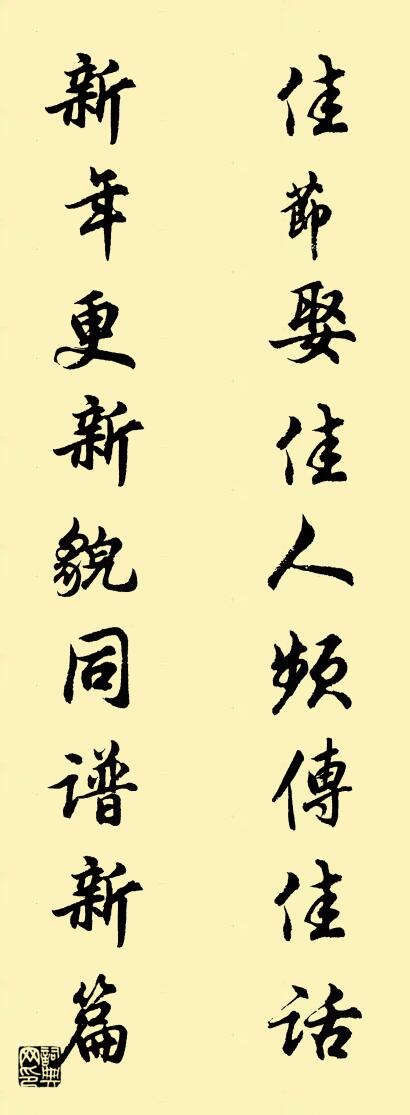 佳節娶佳人頻傳佳话
新年更新貌同谱新篇
詞典网印